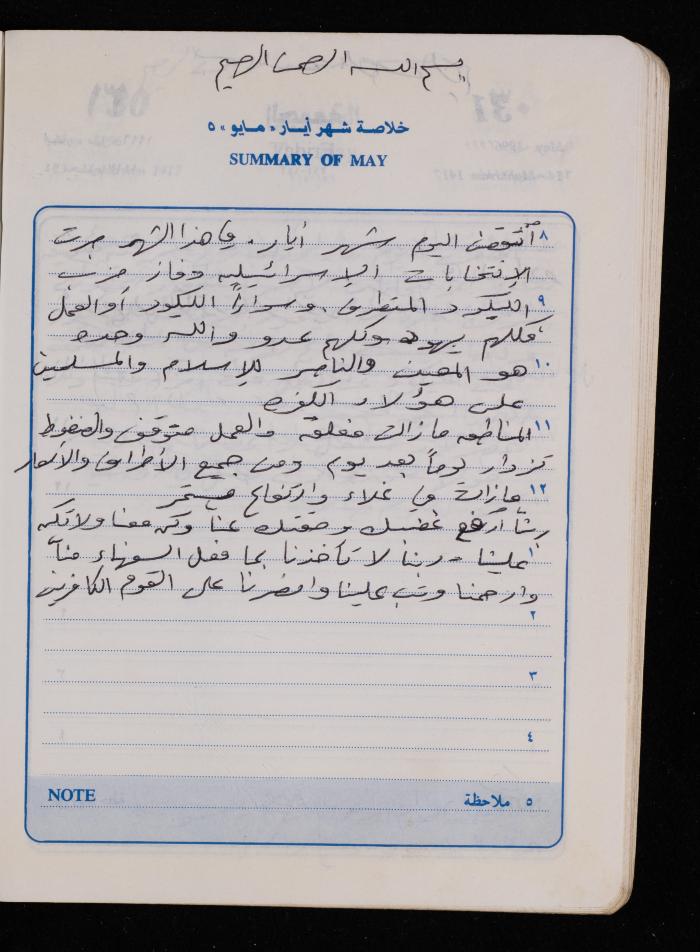 بسم الله الرحمن الرحيم
خلاصة شهر أيـار «مـايو» ٥
SUMMARY OF MAY
٨ انقضى اليوم شهر أيار. في هذا الشهر جرت
الإنتخابات الإسرائيليه وفاز حزب
٩ الليكود المتطرف. وسواءً الليكود أو العمل
فكلهم يهود وكلهم عدو والله وحده
١٠ هو المعين والناصر للإسلام والمسلمين
على هؤلاء الكفره
١١ المناطق مازالت مغلقه والعمل متوقف والضغوط
تزداد يوماً بعد يوم ومن جميع الأطراف والأسعار
١٢ مازالت في غلاء وارتفاع مستمر
ربنا ارفع غضبك ومقتك عنا وكن معنا ولا تكن
١ علينا - ربنا لا تأخذنا بما فعل السفهاء منا
وارحمنا وتب علينا وانصرنا على القوم الكافرين
٢
٣
٤
NOTE ٥ ملاحظة